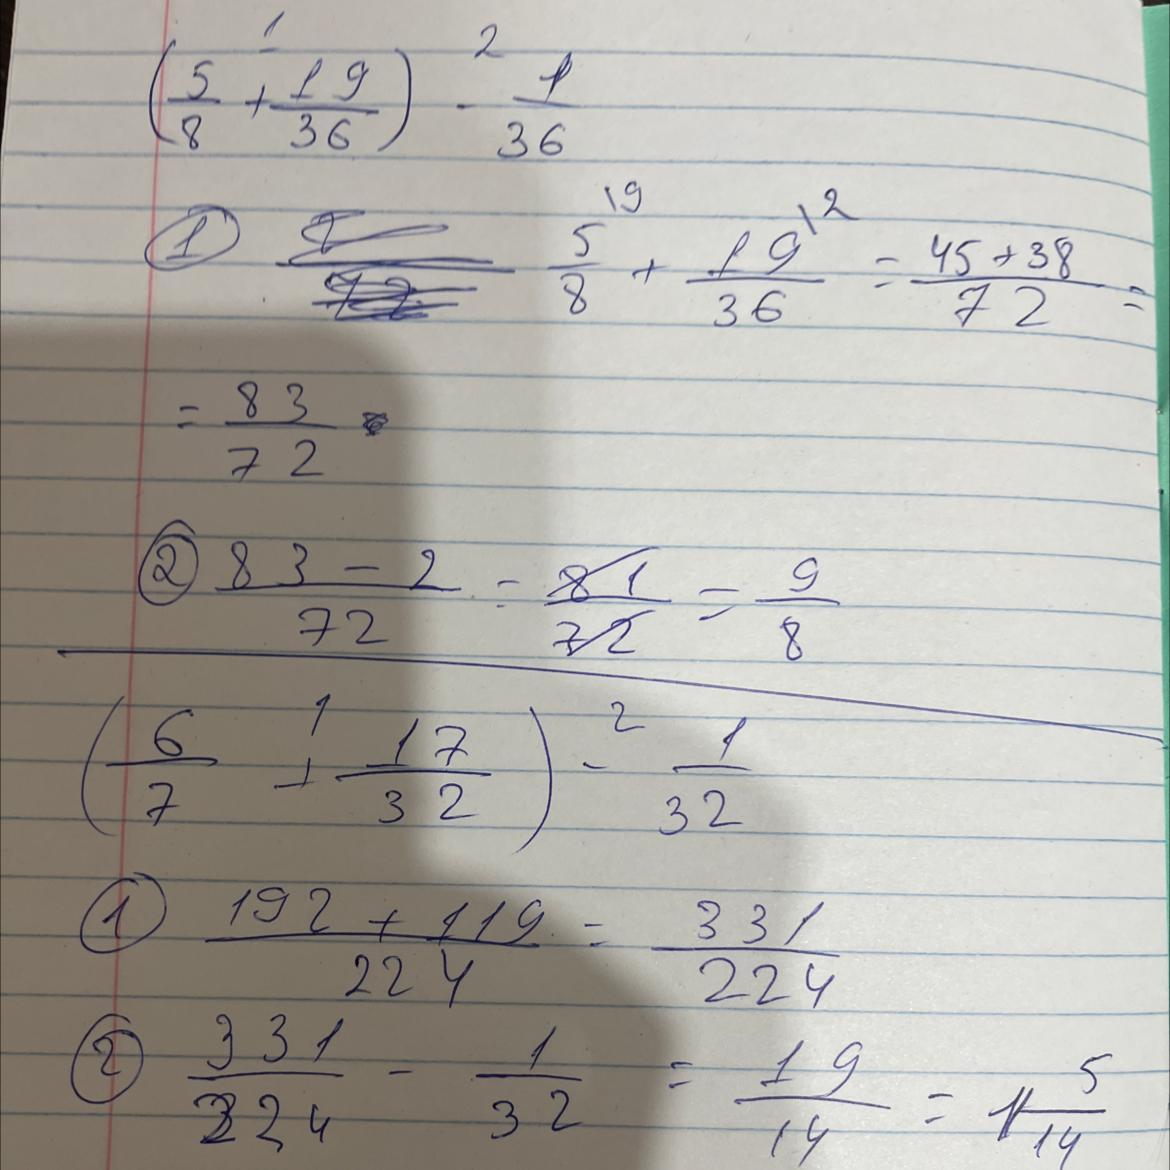 (5/8 + 19/36) - 1/36
1 2
① 5/8 \9 + 19/36 \2 = (45 + 38)/72 =
= 83/72
② (83 - 2)/72 = 81/72 = 9/8
(6/7 + 17/32) - 1/32
1 2
① (192 + 119)/224 = 331/224
② 331/224 - 1/32 = 19/14 = 1 5/14